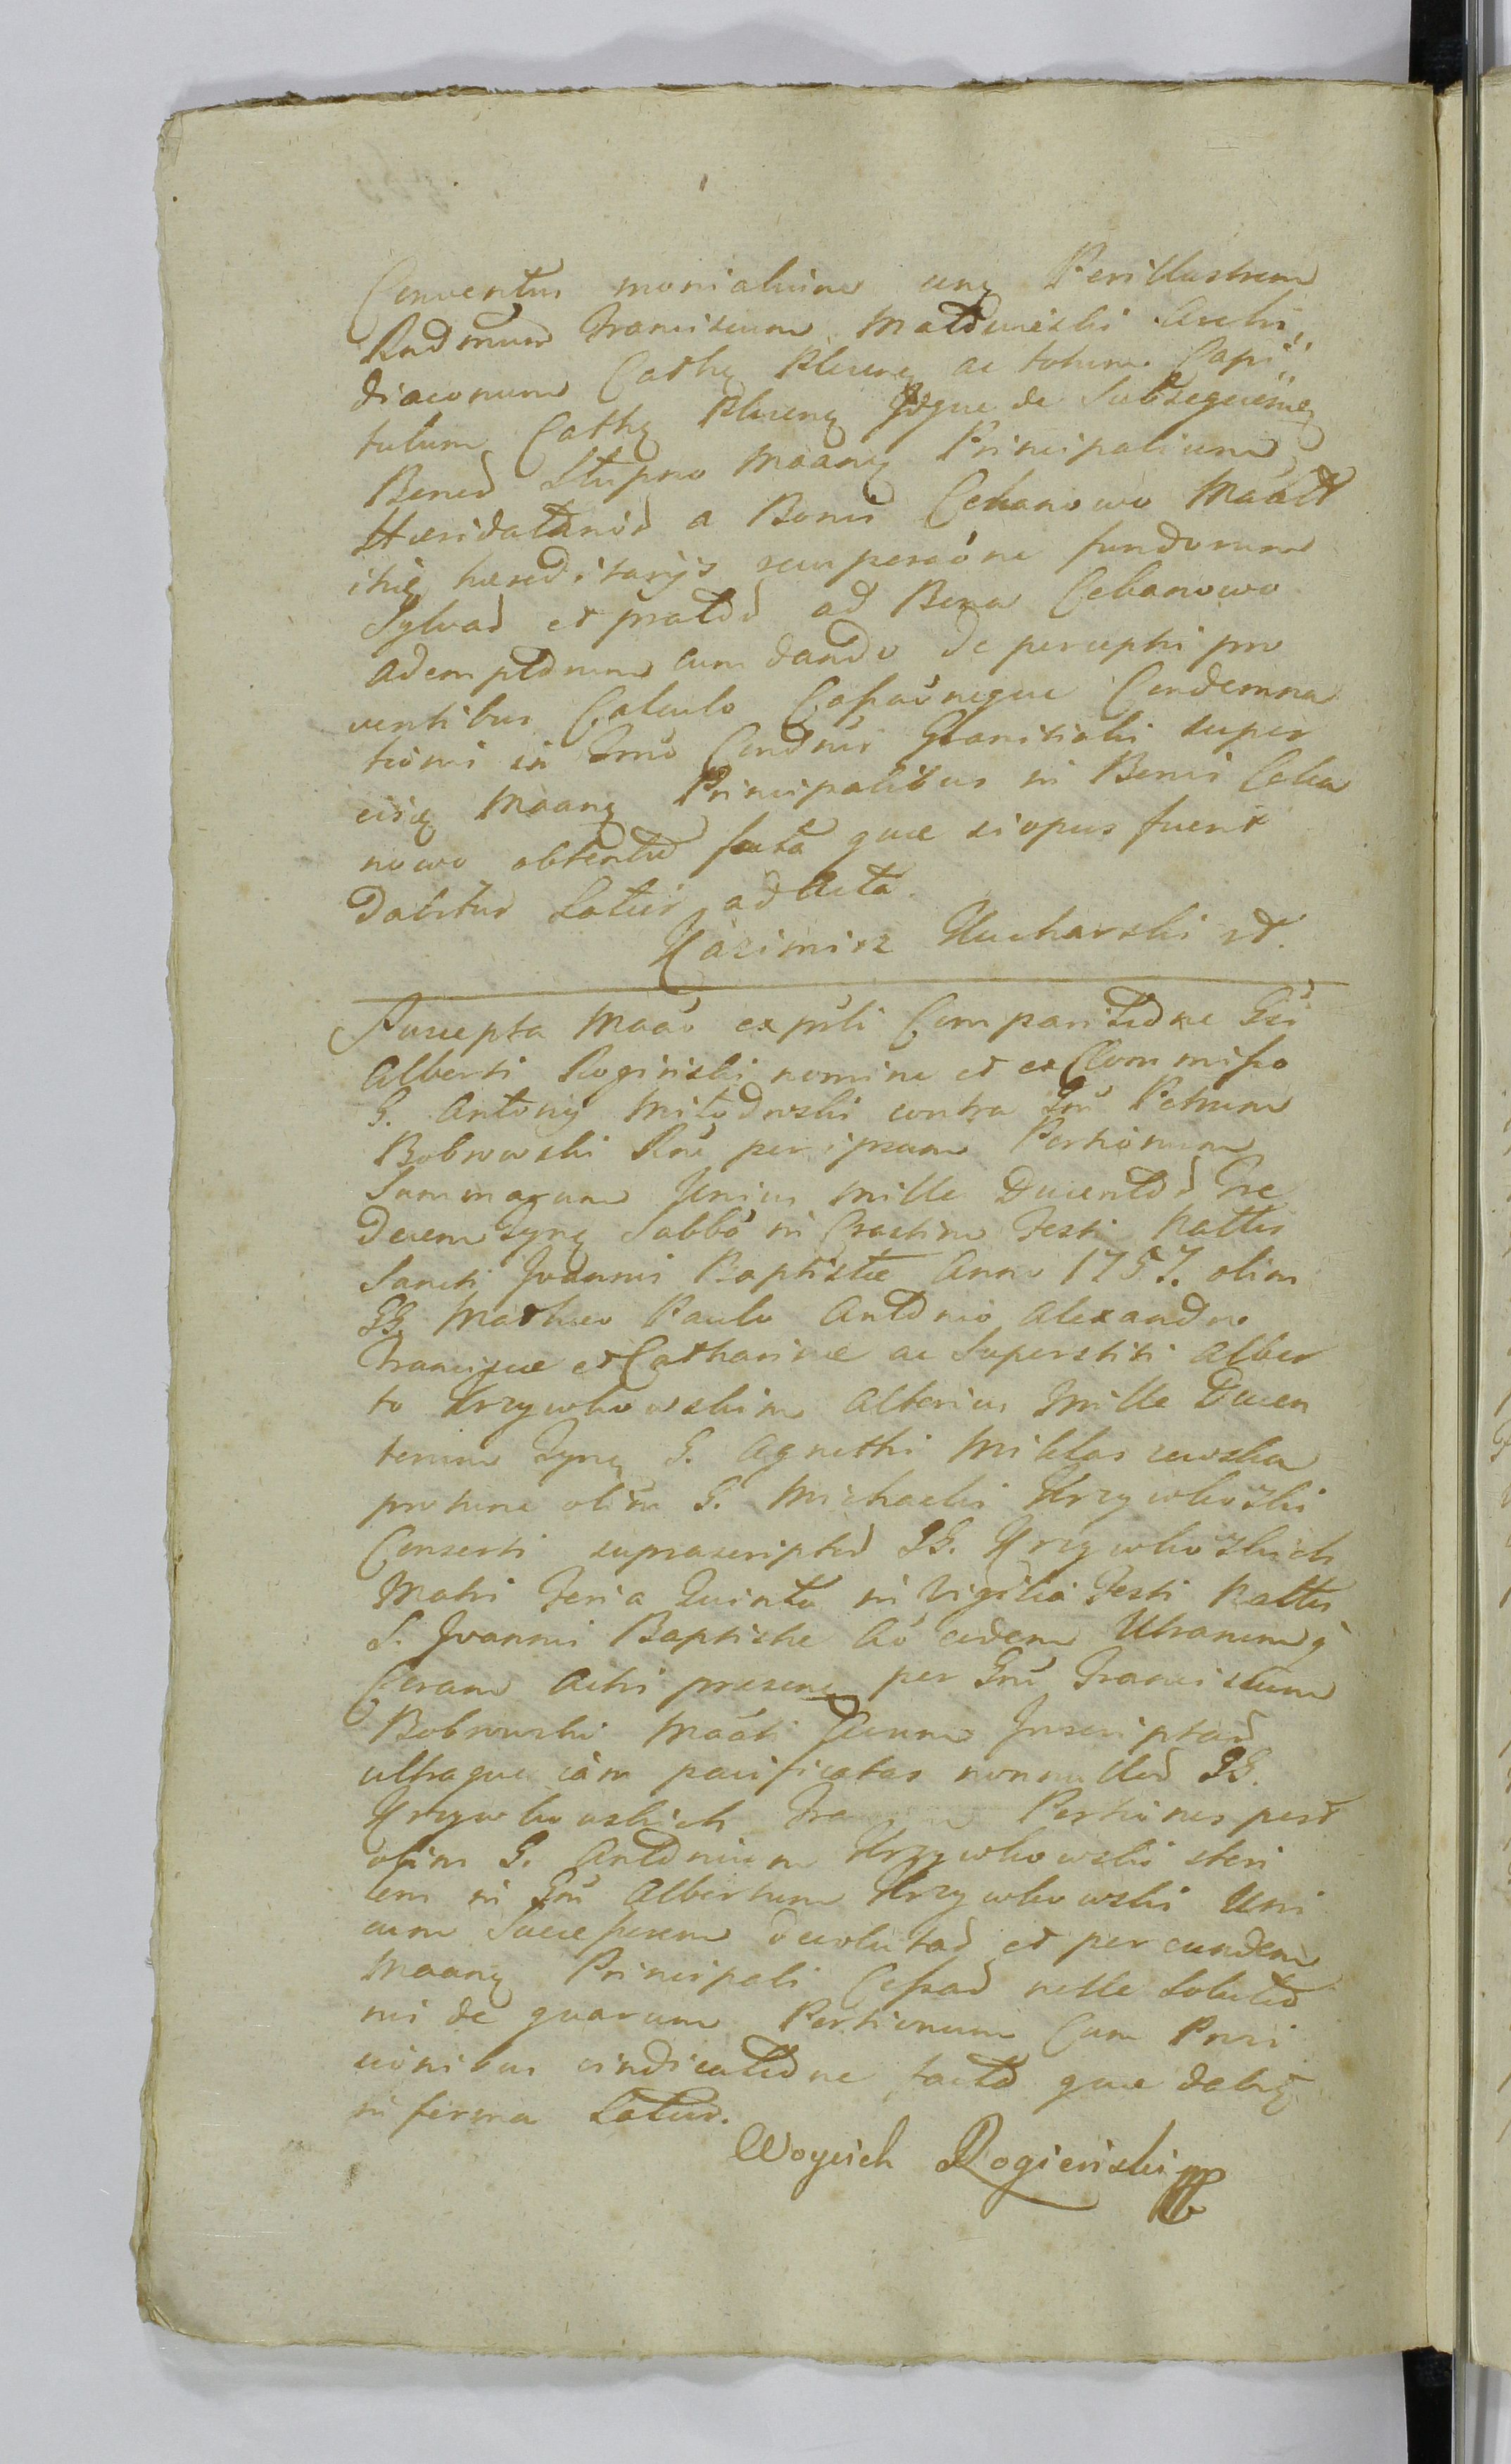 Conventus monialium eng Perillustrem
Rndmum Franciscum Matuieski Archi„
diaconum Cathę Plocenę ac totum Capi„
tulum Cathę Plocenę Idque de Subsequeneę
Bened Stupno Maang Principalium
Haeridatanis a Bonis Cekanowo Maatt
itię hæreditarijs recuperaóne fundorum
Sylvas et pratos ad Bona Cekanowo
ademptorum cum dando de perceptis pro
ventibus Calculo Cassaónique Condemna
tiónis in Trno Cendnsi Granitiali super
eisię Maang Principalibus in Bonis Ceka
nowo obtentis facta quæ si opus fuerit
Dabitur Latius ad Acta.
Kazimirz Kucharski st.
Suscepta Maaó ex pñti Comparitióne Gsi
Alberti Rogiński nomine et ex Commisso
G. Antonij Miłodroski contra Gnu Petrum
Bobrowski Rne per ipsum Portionum
Summarum Unius Mille Ducentos Tre
decem Tynę Sabbó in Crastino Festi Nattis
Sancti Joannis Baptistæ Anno 1757. olim
GG. Matheo Paulo Antonio Alexandro
Franciscæ et Catharinæ ac Superstiti Alber
to Krzywkowskim alterius Mille Ducen
torum Tynę G. Agnethi Miklaszewska
pro tunc olim G. Michaelis Krzywkoski
Conserti suprascriptis GG. Krzywkoskich
Matri Feria Quinta in Vigilia Festi Nattis
S. Joannis Baptistæ Aó eidem Utranumq
Coram Actis præsenę per Gnu Franciscum
Bobrowski Maati Suum Inscriptas
ultraque iam pacificatas nonnullos GG.
Krzywkowskich Portiones post
olim G. Antonium Krzywkowski steri
lem in Gnu Albertum Krzywkowski Uni
cum Successorem devolutas et per eundem
Maang Principali Cessas nelle Solutio
nis de quarum Portionum Cum Provi
sionibus vindicatióne facto quæ dabię
in forma Latius.
Woyciech Rogienski